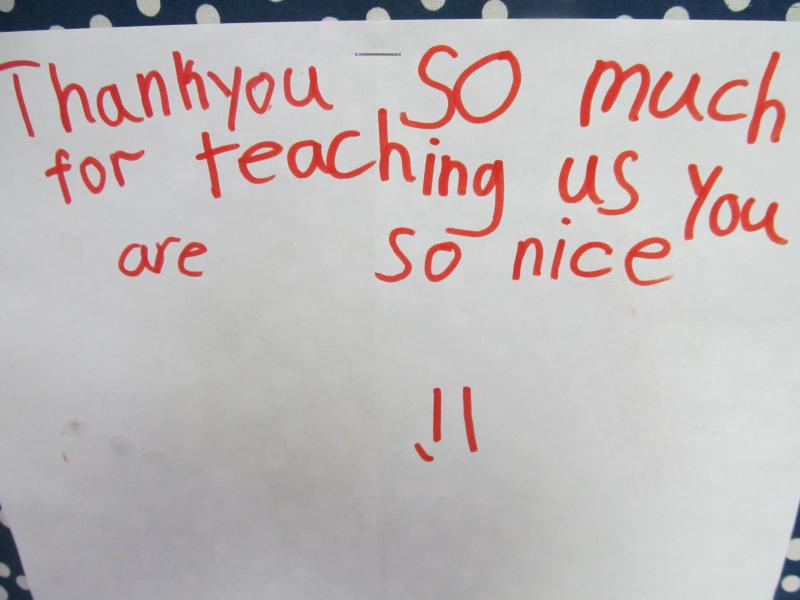 Thankyou SO much
for teaching us You
are so nice
!!